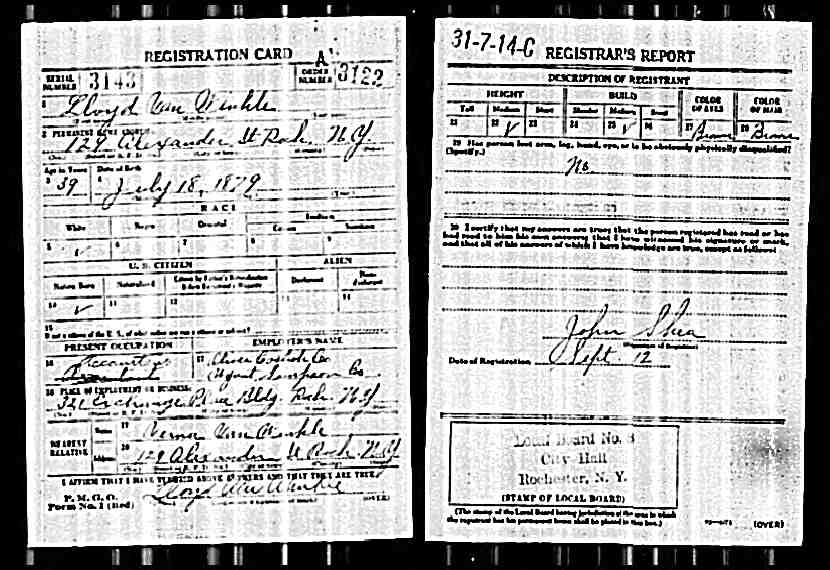 REGISTRATION CARD
SERIAL NUMBER 3143
ORDER NUMBER 3122
1 Lloyd Van Winkle
2 PERMANENT HOME ADDRESS
129 Alexander St Roch. N.Y.
Age in Years Date of Birth
3 39 4 July 18, 1879
RACE
White Negro Oriental Indian
Citizen
5 ✓ 6 7 8 9
U. S. CITIZEN ALIEN
Native Born Naturalized Citizen by Father's Naturalization Before Registrant's Majority Declarant Non-declarant
10 ✓ 11 12 13 14
15
If not a citizen of the U. S., of what nation are you a citizen or subject?
PRESENT OCCUPATION EMPLOYER'S NAME
16 17
18 PLACE OF EMPLOYMENT OR BUSINESS
Exchange Place Bldg. Roch. N.Y.
NEAREST RELATIVE
Name 19 Van Winkle
Address 20 129 Alexander St Roch. N.Y.
I AFFIRM THAT I HAVE VERIFIED ABOVE ANSWERS AND THAT THEY ARE TRUE
P. M. G. O.
Form No. 1 (Red)
Lloyd Van Winkle
(OVER)
31-7-14-C REGISTRAR'S REPORT
DESCRIPTION OF REGISTRANT
HEIGHT BUILD COLOR OF EYES COLOR OF HAIR
Tall Medium Short Slender Medium Stout
21 22 ✓ 23 24 25 ✓ 26 27 Brown 28 Brown
29 Has person lost arm, leg, hand, eye, or is he obviously physically disqualified?
(Specify.)
No
30 I certify that my answers are true; that the person registered has read or has
had read to him his own answers; that I have witnessed his signature or mark,
and that all of his answers of which I have knowledge are true, except as follows:
John Shea
(Signature of Registrar)
Date of Registration Sept. 12
Local Board No. 3
City Hall
Rochester, N. Y.
(STAMP OF LOCAL BOARD)
(The stamp of the Local Board having jurisdiction of the area in which
the registrant has his permanent home shall be placed in this box.)
(OVER)